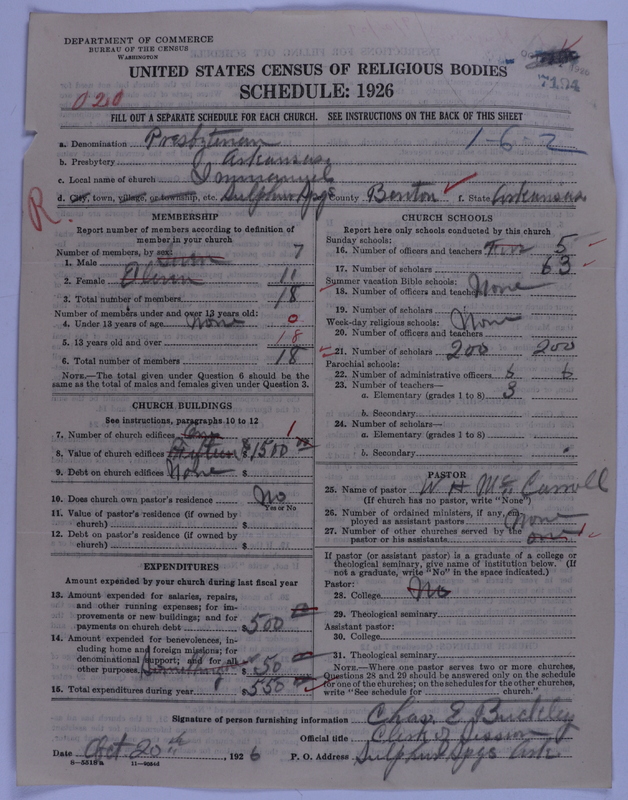 DEPARTMENT OF COMMERCE
BUREAU OF THE CENSUS
WASHINGTON
7194
UNITED STATES CENSUS OF RELIGIOUS BODIES
SCHEDULE: 1926
020
FILL OUT A SEPARATE SCHEDULE FOR EACH CHURCH. SEE INSTRUCTIONS ON THE BACK OF THIS SHEET
a. Denomination Presbyterian
1-6-2
b. Presbytery Arkansas
c. Local name of church Immanuel
d. City, town, village, or township, etc. Sulphur Spgs County Benton f. State Arkansas
R.
MEMBERSHIP
Report number of members according to definition of
member in your church
Number of members, by sex:
1. Male Seven 7
2. Female Eleven 11
3. Total number of members 18
Number of members under and over 13 years old:
4. Under 13 years of age None 0
5. 13 years old and over 18
6. Total number of members 18
NOTE.—The total given under Question 6 should be the
same as the total of males and females given under Question 3.
CHURCH BUILDINGS
See instructions, paragraphs 10 to 12
7. Number of church edifices One 1
8. Value of church edifices Fifteen $1500 00
9. Debt on church edifices None $
10. Does church own pastor's residence No
Yes or No
11. Value of pastor's residence (if owned by
church) $
12. Debt on pastor's residence (if owned by
church) $
EXPENDITURES
Amount expended by your church during last fiscal year
13. Amount expended for salaries, repairs,
and other running expenses; for im-
provements or new buildings; and for
payments on church debt $ 500 00
14. Amount expended for benevolences, in-
cluding home and foreign missions; for
denominational support; and for all
other purposes $ 50 00
15. Total expenditures during year $ 550 00
CHURCH SCHOOLS
Report here only schools conducted by this church
Sunday schools:
16. Number of officers and teachers Five 5
17. Number of scholars 63
Summer vacation Bible schools:
18. Number of officers and teachers None
19. Number of scholars
Week-day religious schools: None
20. Number of officers and teachers
21. Number of scholars 200 200
Parochial schools:
22. Number of administrative officers 6 6
23. Number of teachers—
a. Elementary (grades 1 to 8) 3
b. Secondary
24. Number of scholars—
a. Elementary (grades 1 to 8)
b. Secondary
PASTOR
25. Name of pastor W H McCarroll
(If church has no pastor, write "None")
26. Number of ordained ministers, if any, em-
ployed as assistant pastors None
27. Number of other churches served by the
pastor or his assistants one 1
If pastor (or assistant pastor) is a graduate of a college or
theological seminary, give name of institution below. (If
not a graduate, write "No" in the space indicated.)
Pastor:
28. College No
29. Theological seminary
Assistant pastor:
30. College
31. Theological seminary
NOTE.—Where one pastor serves two or more churches,
Questions 28 and 29 should be answered only on the schedule
for one of the churches; on the schedules for the other churches,
write "See schedule for church."
Signature of person furnishing information Chas. E. Buckley
Official title Clerk of Session
Date Oct 20th, 1926 P. O. Address Sulphur Spgs Ark
8—5518 a